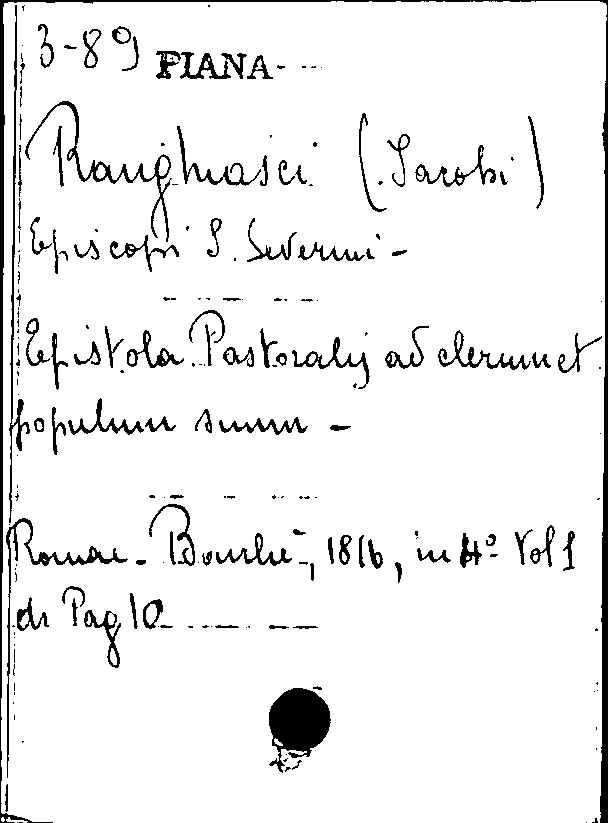 3-89 PIANA
Ranghiasci (Jacobi)
Episcopi S. Severini -
Epistola Pastoralis ad clerum et
populum suum -
Romae - Bourlié, 1816, in 4º Vol 1
di Pag 10